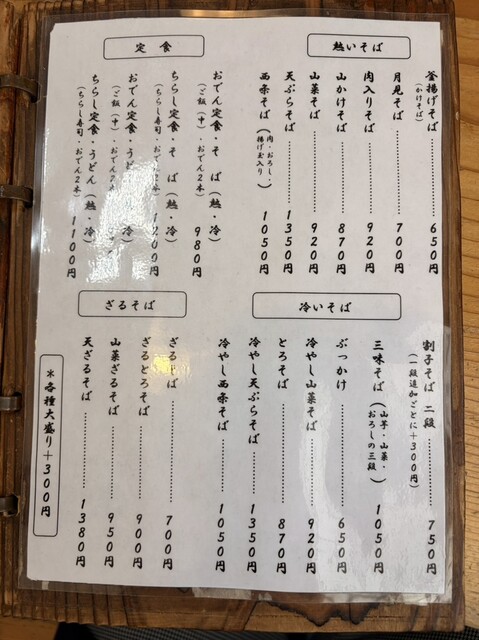 熱いそば
釜揚げそば……650円
(かけそば)
月見そば……700円
肉入りそば……920円
山かけそば……870円
山菜そば……920円
天ぷらそば……1350円
西条そば(肉・おろし・揚げ玉入り)……1050円
定食
おでん定食・そば(熱・冷)
(ご飯(中)・おでん2本) 980円
ちらし定食・そば(熱・冷)
(ちらし寿司・おでん2本) 1200円
おでん定食・うどん(熱・冷)
(ご飯(中)・おでん2
ちらし定食・うどん(熱・冷)
(ちらし寿司・おでん2本) 1100円
冷いそば
割子そば 二段……750円
(一段追加ごとに+300円)
三味そば(山芋・山菜・おろしの三段)……1050円
ぶっかけ……650円
冷やし山菜そば……920円
とろそば……870円
冷やし天ぷらそば……1350円
冷やし西条そば……1050円
ざるそば
ざるそば……700円
ざるとろそば……900円
山菜ざるそば……950円
天ざるそば……1380円
*各種大盛り+300円